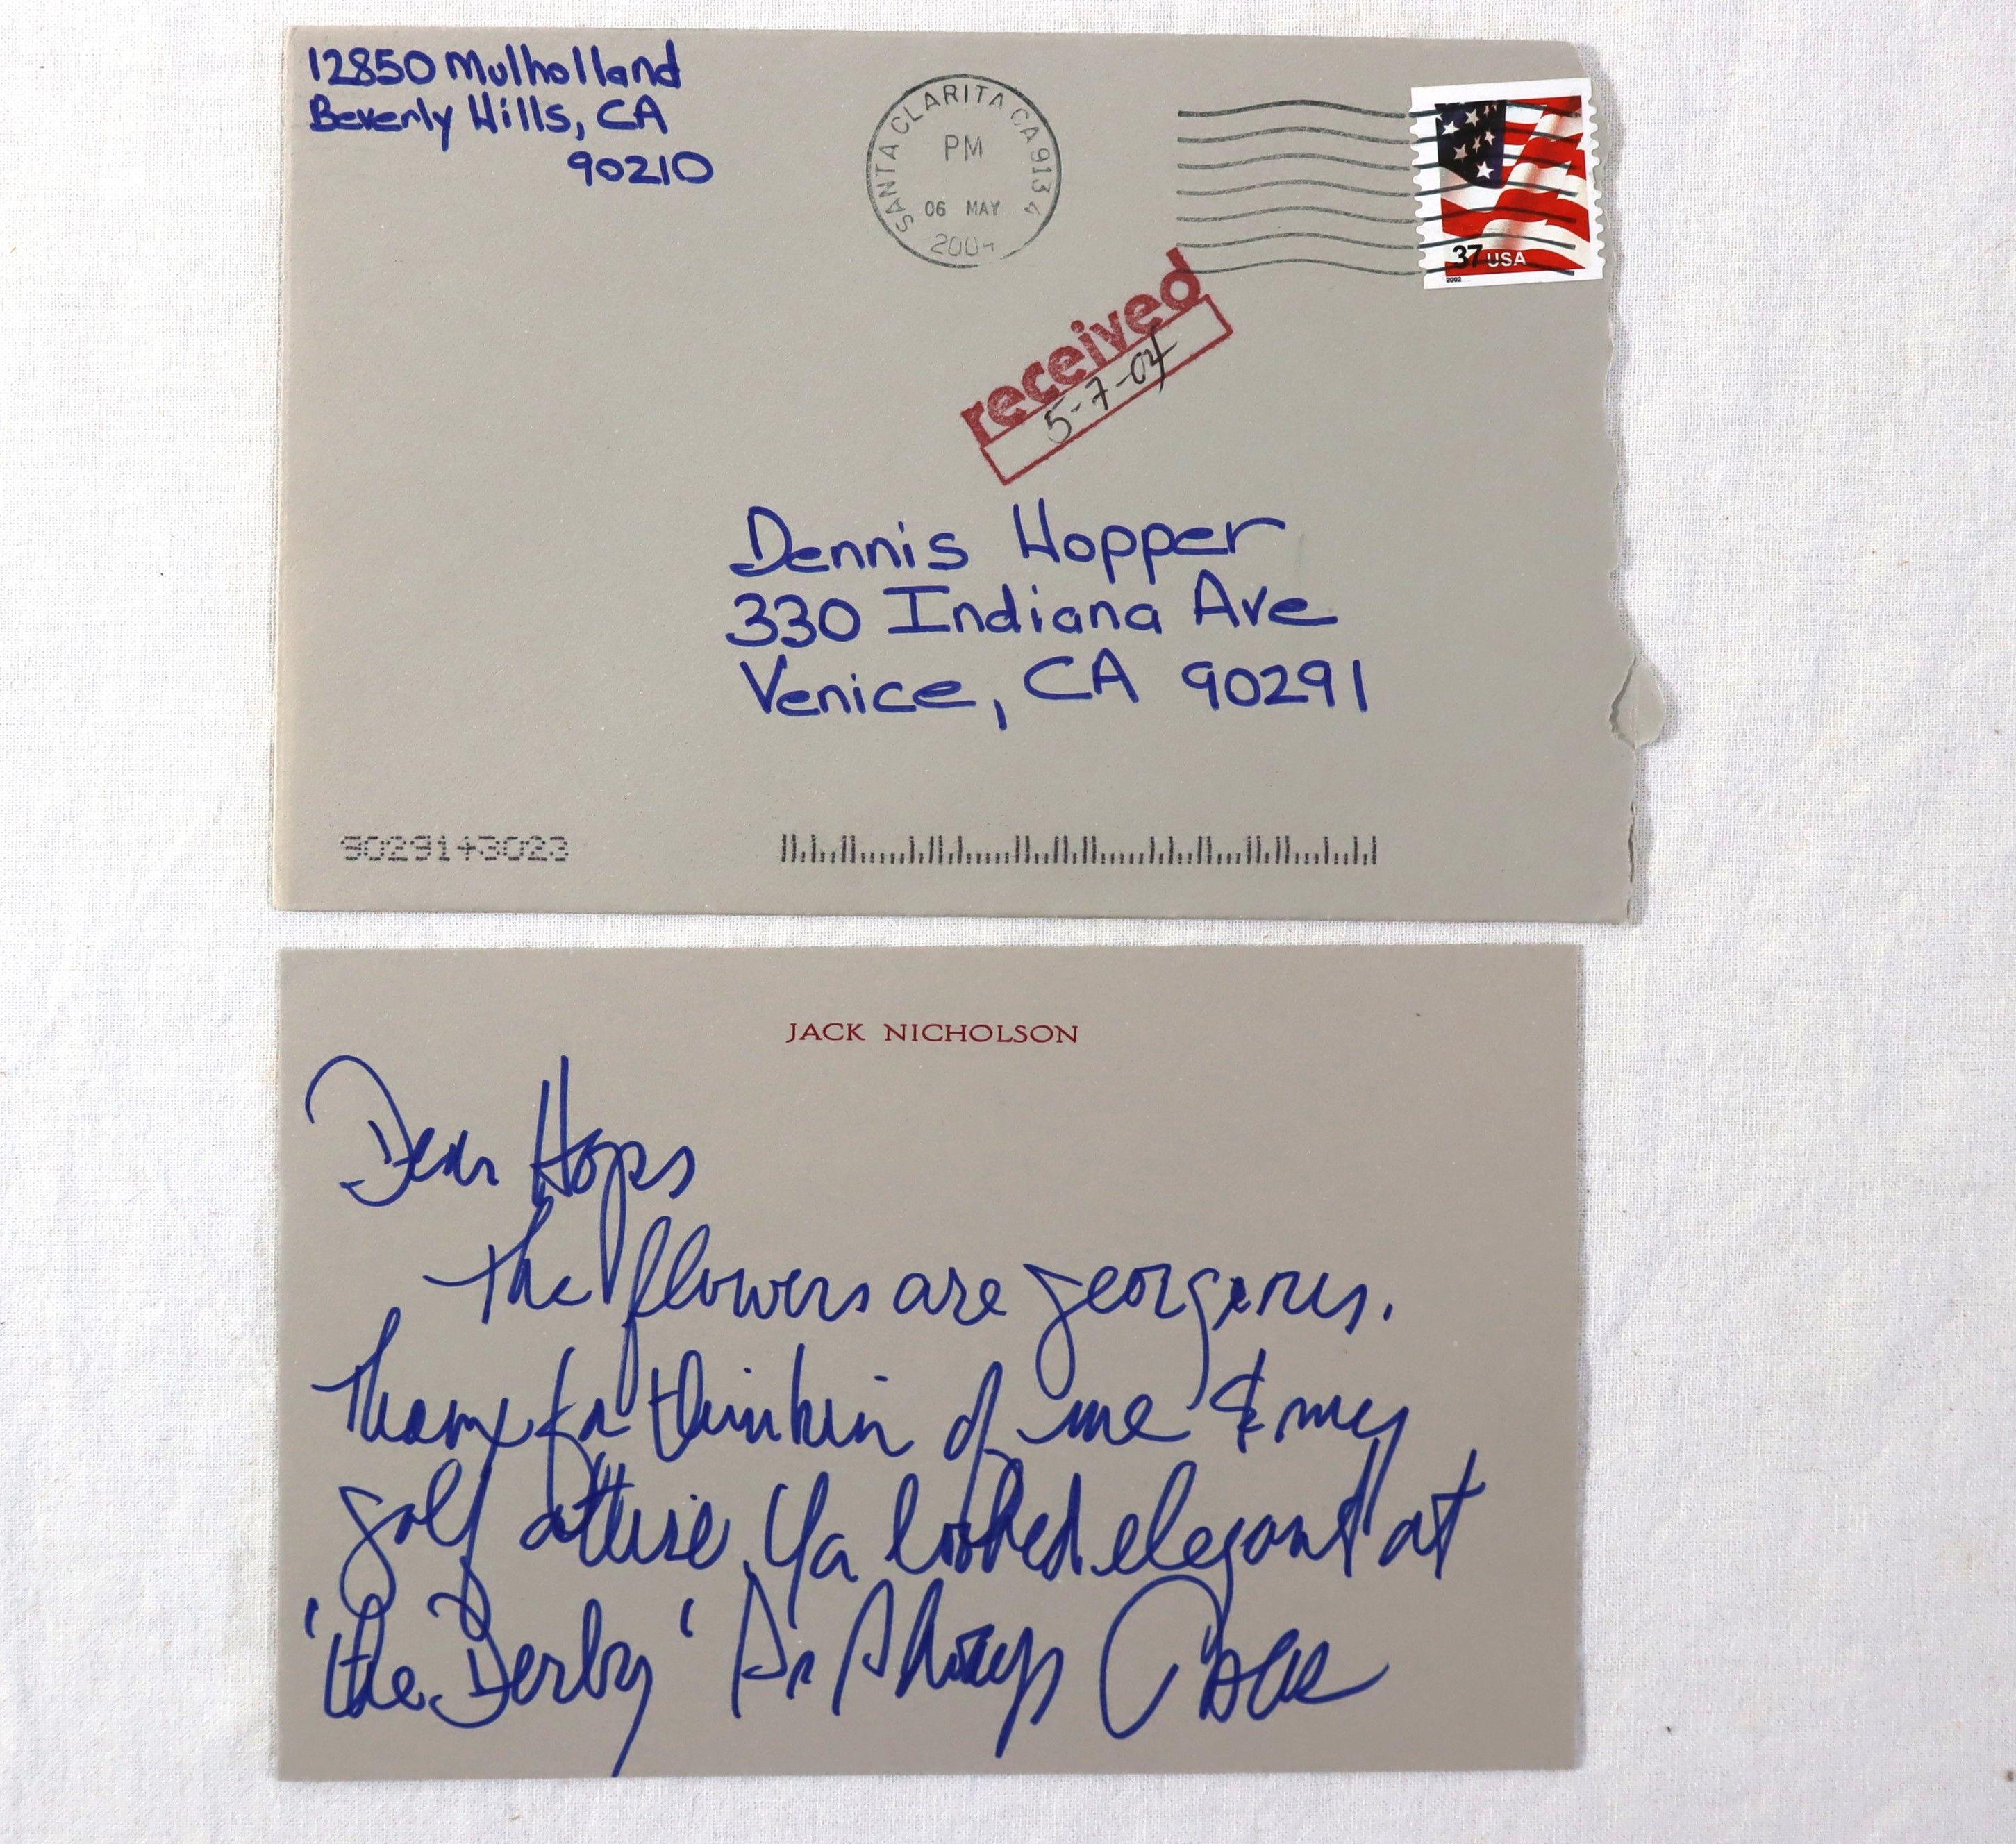 12850 Mulholland
Beverly Hills, CA
90210
SANTA CLARITA CA 913
PM
06 MAY
2004
37 USA
2002
received
5-7-04
Dennis Hopper
330 Indiana Ave
Venice, CA 90291
90291+3023
JACK NICHOLSON
Dear Hops
The flowers are georgeous.
Thanx for thinkin of me & my
golf attire. Ya looked elegant at
'the Derby' As Always Jack